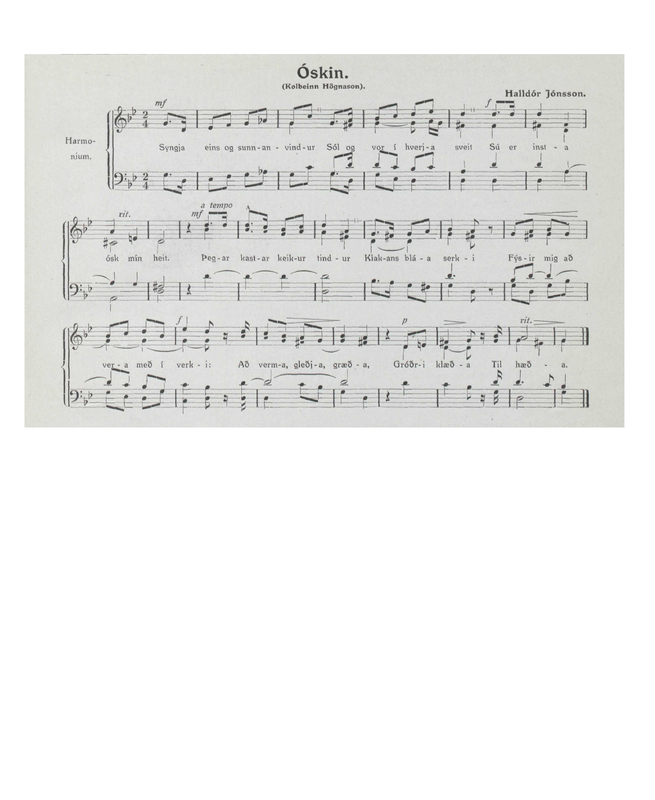 Óskin.
(Kolbeinn Högnason).
Halldór Jónsson.
mf
f
Harmo-
nium.
Syngja eins og sunn-an-vind-ur Sól og vor í hverj-a sveit Sú er inst-a
rit.
a tempo
mf
ósk mín heit. Þeg-ar kast-ar keik-ur tind-ur Klak-ans blá-a serk-i Fýs-ir mig að
f
p
rit.
ver-a með í verk-i: Að verm-a, gleðj-a, græð-a, Gróðr-i klæð-a Til hæð-a.